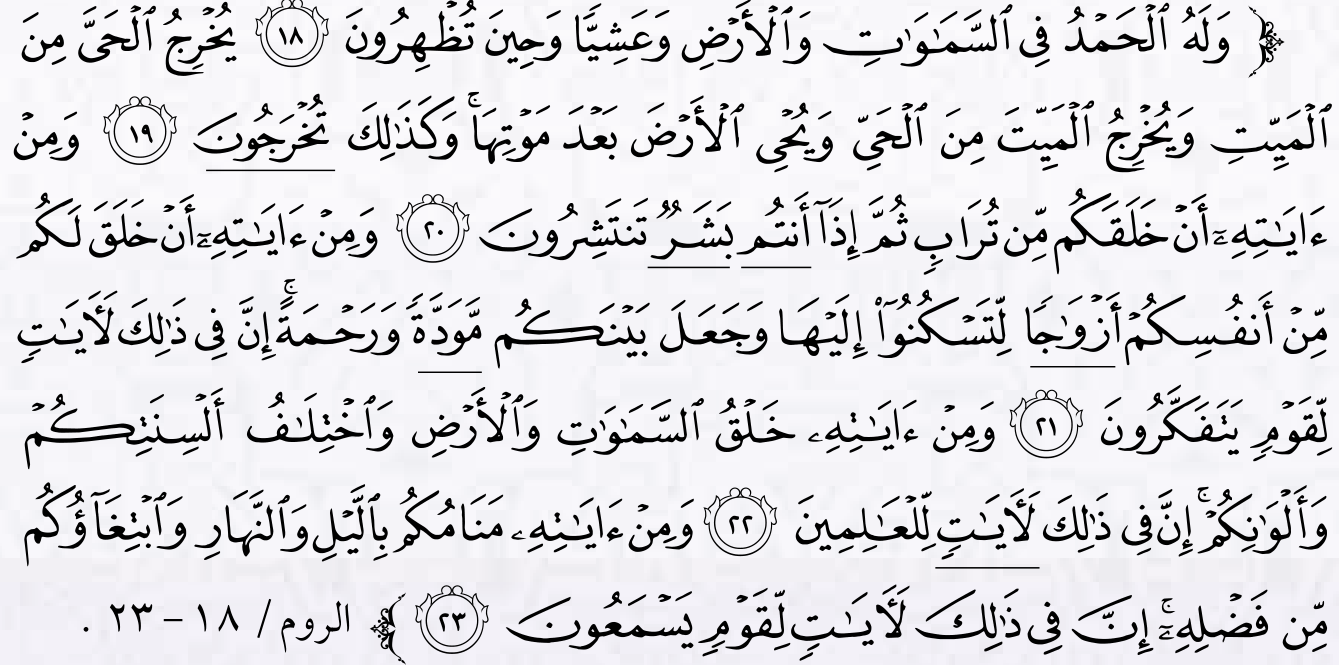 ﴿ وَلَهُ ٱلْحَمْدُ فِى ٱلسَّمَـٰوَٰتِ وَٱلْأَرْضِ وَعَشِيًّا وَحِينَ تُظْهِرُونَ ١٨ يُخْرِجُ ٱلْحَىَّ مِنَ
ٱلْمَيِّتِ وَيُخْرِجُ ٱلْمَيِّتَ مِنَ ٱلْحَىِّ وَيُحْىِ ٱلْأَرْضَ بَعْدَ مَوْتِهَا ۚ وَكَذَٰلِكَ تُخْرَجُونَ ١٩ وَمِنْ
ءَايَـٰتِهِۦٓ أَنْ خَلَقَكُم مِّن تُرَابٍ ثُمَّ إِذَآ أَنتُم بَشَرٌ تَنتَشِرُونَ ٢٠ وَمِنْ ءَايَـٰتِهِۦٓ أَنْ خَلَقَ لَكُم
مِّنْ أَنفُسِكُمْ أَزْوَٰجًا لِّتَسْكُنُوٓا۟ إِلَيْهَا وَجَعَلَ بَيْنَكُم مَّوَدَّةً وَرَحْمَةً ۚ إِنَّ فِى ذَٰلِكَ لَـَٔايَـٰتٍ
لِّقَوْمٍ يَتَفَكَّرُونَ ٢١ وَمِنْ ءَايَـٰتِهِۦ خَلْقُ ٱلسَّمَـٰوَٰتِ وَٱلْأَرْضِ وَٱخْتِلَـٰفُ أَلْسِنَتِكُمْ
وَأَلْوَٰنِكُمْ ۚ إِنَّ فِى ذَٰلِكَ لَـَٔايَـٰتٍ لِّلْعَـٰلِمِينَ ٢٢ وَمِنْ ءَايَـٰتِهِۦ مَنَامُكُم بِٱلَّيْلِ وَٱلنَّهَارِ وَٱبْتِغَآؤُكُم
مِّن فَضْلِهِۦٓ ۚ إِنَّ فِى ذَٰلِكَ لَـَٔايَـٰتٍ لِّقَوْمٍ يَسْمَعُونَ ٢٣ ﴾ الروم / ١٨ - ٢٣ .